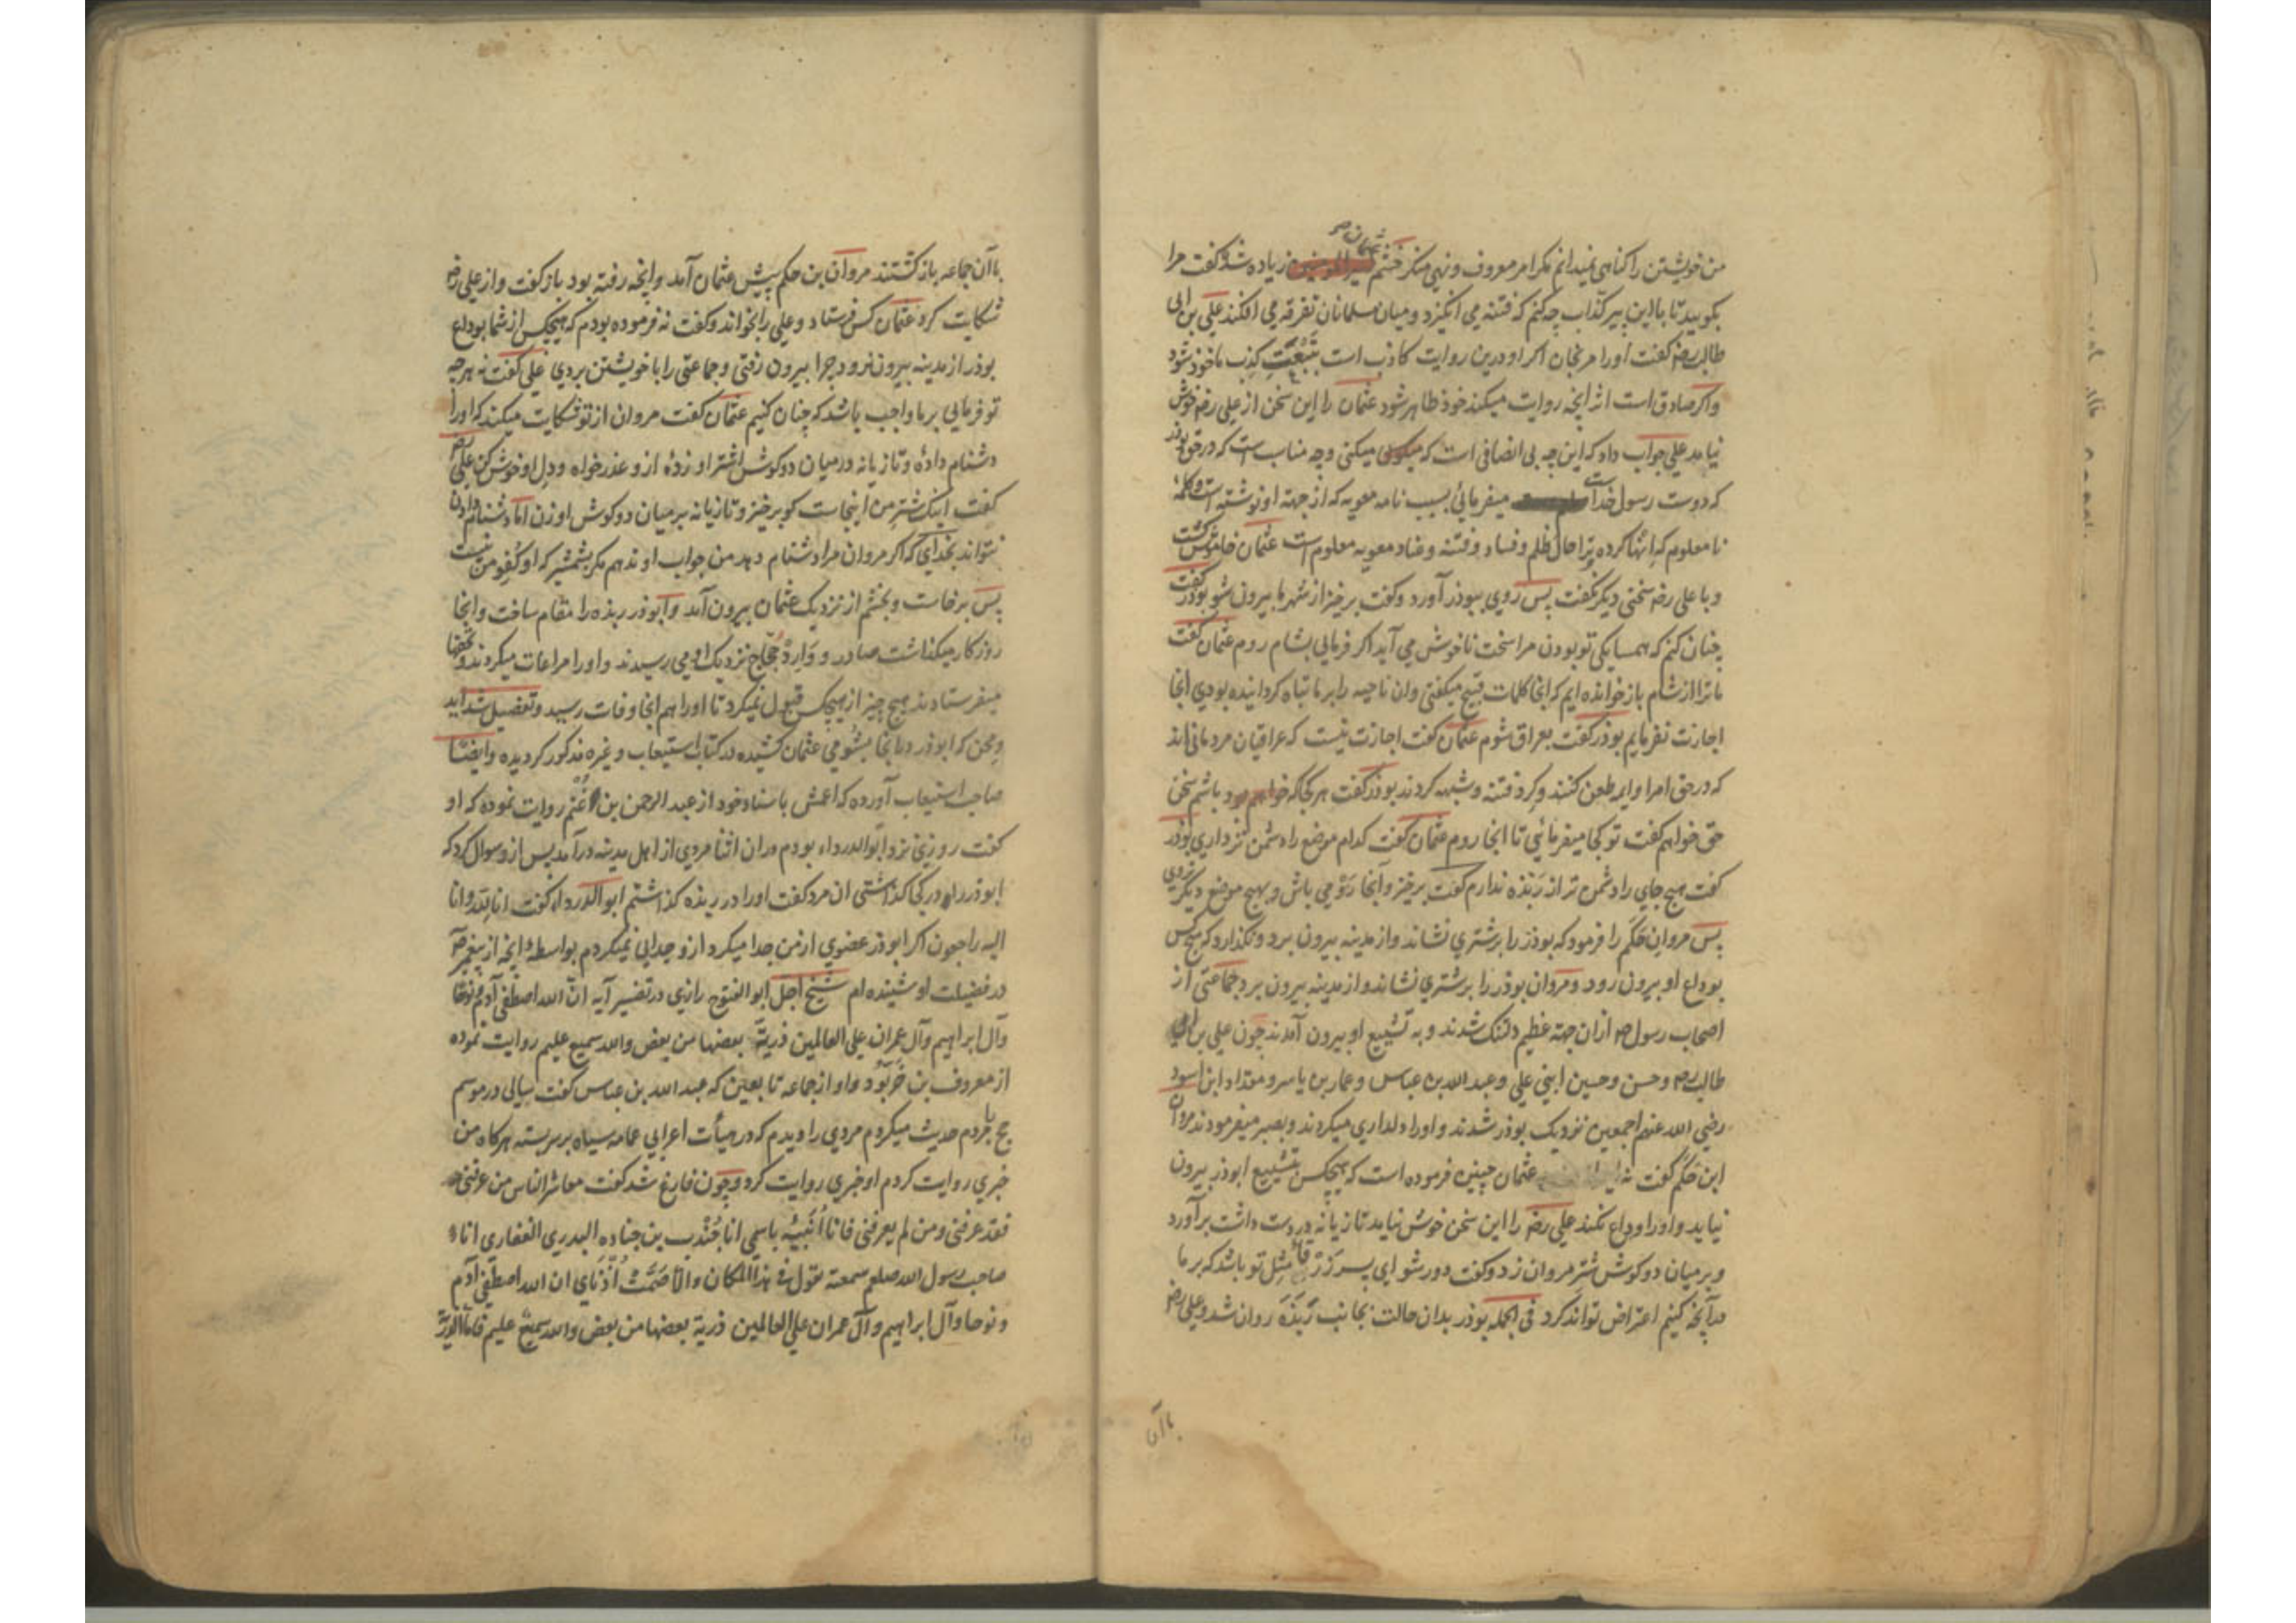 من خویشتن را کناهی نمیدانم مکر امر معروف و نهی منکر خشم عثمان زیاده شد و کفت مرا
بکویید تا با این پیر کذاب چه کنم که فتنه می انکیزد و میان مسلمانان تفرقه می افکند علی بن ابی
طالب رضه کفت او را مرنجان اکر او درین روایت کاذب است بتبعیت کذب ماخوذ شود
و اکر صادق است اثر انچه روایت میکند خود ظاهر شود عثمان را این سخن از علی رضه خوش
نیامد علی جواب داد که این چه بی انصافی است که میکنی و چه مناسب است که در حق بوذر
که دوست رسول خداست میفرمائی بسبب نامه معویه که از جهة او نوشته است و کلمه
نا معلوم که انها کرده ترا حال ظلم و فساد و فتنه و عناد معویه معلوم است عثمان خاموش کشت
و با علی رضه سخنی دیکر نکفت پس روی ببوذر آورد و کفت برخیز از شهر ما بیرون شو بوذر کفت
چنان کنم که همسایکی تو بودن مرا سخت ناخوش می آید اکر فرمایی بشام روم عثمان کفت
ما ترا از شام باز خوانده ایم که انجا کلمات قبیح میکفتی و ان ناحیه را بر ما تباه کردانیده بودی انجا
اجازت نفرمایم بوذر کفت بعراق شوم عثمان کفت اجازت نیست که عراقیان مردمانی اند
که در حق امرا و ایمه طعن کنند و کرد فتنه و شبهه کردند بوذر کفت هر کجا که خواهم بود باشم سخن
حق خواهم کفت تو کجا میفرمائی تا انجا روم عثمان کفت کدام موضع را دشمن تر داری بوذر
کفت هیچ جای را دشمن تر از ربذه ندارم کفت برخیز و آنجا رو می باش و بهیچ موضع دیکر مروی
پس مروان حکم را فرمود که بوذر را بر شتری نشاند و از مدینه بیرون برد و نکذارد که هیچ کس
بوداع او بیرون رود و مروان بوذر را بر شتری نشاند و از مدینه بیرون برد جماعتی از
اصحاب رسول ص ازان جهة عظیم دلتنک شدند و به تشییع او بیرون آمدند چون علی بن ابی
طالب رضه و حسن و حسین ابنی علی و عبد الله بن عباس و عمار بن یاسر و مقداد ابن اسود
رضی الله عنهم اجمعین نزدیک بوذر شدند و او را دلداری میکردند و بصبر میفرمودند مروان
ابن حکم کفت نه عثمان چنین فرموده است که هیچکس بتشییع ابوذر بیرون
نیاید و او را وداع نکند علی رضه را این سخن خوش نیامد تازیانه در دست داشت برآورد
و بر میان دو کوش شتر مروان زد و کفت دور شو ای پسر زرقا مثل تو باشد که بر ما
در آنچه کنیم اعتراض تواند کرد فی الجمله بوذر بدان حالت بجانب ربذه روان شد و علی رضه
باآن
باآن جماعه باز کشتند مروان بن حکم پیش عثمان آمد و انچه رفته بود باز کفت و از علی رضه
شکایت کرد عثمان کس فرستاد و علی را بخواند و کفت نه فرموده بودم که هیچکس از شما بوداع
بوذر از مدینه بیرون نرود چرا بیرون رفتی و جماعتی را با خویشتن بردی علی کفت نه هر چه
تو فرمایی بر ما واجب باشد که چنان کنیم عثمان کفت مروان از تو شکایت میکند که او را
دشنام دادهٔ و تازیانه در میان دو کوش اشتر او زدهٔ ازو عذر خواه و دل او خوش کن علی رضه
کفت اینک شتر من اینجاست کو برخیز و تازیانه بر میان دو کوش او زن اما دشنام دادن
نتواند بخدای که اکر مروان مرا دشنام دهد من جواب او ندهم مکر بشمشیر که او کفو من نیست
پس برخاست و بخشم از نزدیک عثمان بیرون آمد و ابوذر ربذه را مقام ساخت و انجا
روزکار میکذاشت صادر و وارد حجاج نزدیک او می رسیدند و او را مراعات میکردند و تحفها
میفرستادند هیچ چیز از هیچکس قبول نمیکرد تا او را هم انجا وفات رسید و تفصیل شداید
و محن که ابوذر در انجا بشومی عثمان کشیده در کتاب استیعاب و غیره مذکور کردیده و ایضا
صاحب استیعاب آورده که اعمش باسناد خود از عبد الرحمن بن غنم روایت نموده که او
کفت روزی نزد ابو الدرداء بودم دران اثنا مردی از اهل مدینه درآمد پس ازو سوال کرد که
ابوذر را در کجا کذاشتی ان مرد کفت او را در ربذه کذاشتم ابو الدرداء کفت انا لله و انا
الیه راجعون اکر ابوذر عضوی از من جدا میکرد ازو جدایی نمیکردم بواسطهٔ انچه از پیغمبر ص
در فضیلت او شنیده ام شیخ اجل ابو الفتوح رازی در تفسیر آیه ان الله اصطفی آدم و نوحا
و آل ابراهیم و آل عمران علی العالمین ذریة بعضها من بعض والله سمیع علیم روایت نموده
از معروف بن خربود و او از جماعه تابعین که عبد الله بن عباس کفت سالی در موسم
حج با مردم حدیث میکردم مردی را دیدم که در هیأت اعرابی عمامه سیاه بر سر بسته هر کاه من
خبری روایت کردم او خبری روایت کرد و چون فارغ شد کفت معاشر الناس من عرفنی
فقد عرفنی و من لم یعرفنی فانا أنبئه باسمی انا جندب بن جناده البدری الغفاری انا
صاحب رسول الله صلعم سمعته یقول فی هذا المکان و الا صمت أذنای ان الله اصطفی آدم
و نوحا و آل ابراهیم و آل عمران علی العالمین ذریة بعضها من بعض والله سمیع علیم فاما الذریة